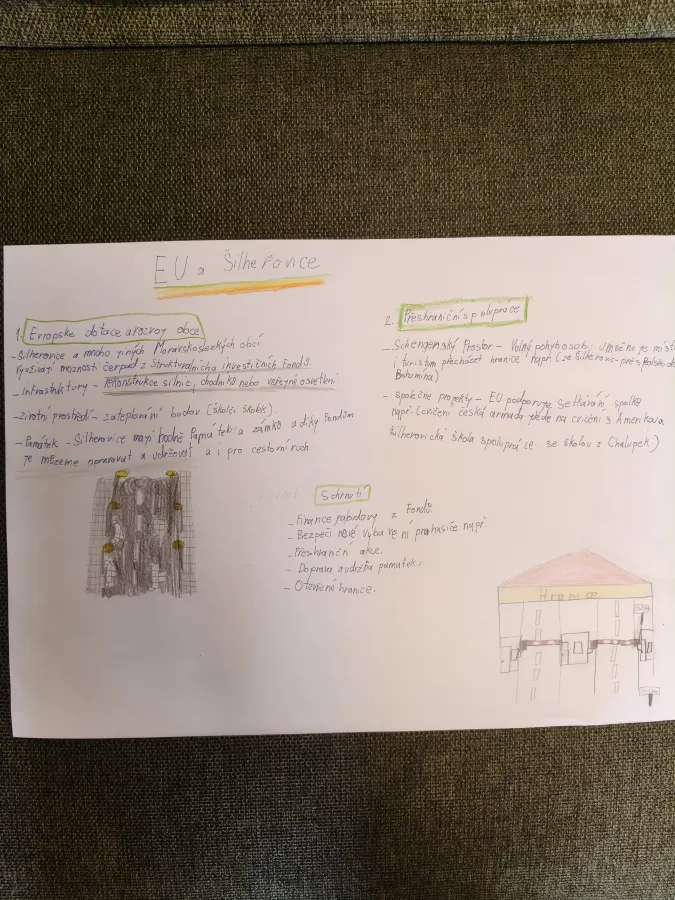 EU a Šilheřovice
1. Evropske dotace a rozvoj obce
- Šilheřovice a mnoho jiných Moravskoslezkých obcí
využívají možnosti čerpad z Strukturalnícha investičních Fondů.
- Infrastruktury - rekonstrukce silnic, chodníků nebo veřejné osvětlení.
- Životní prostředí - zateplování budov (školči školek).
- Památek - Šilheřovice mají hodně Pamatek i a zámků a díky Fondům
je můžeme opravovat a udržovat a i pro cestovní ruch
2. Přeshraniční spolupráce
- Schengenský Prostor - Volný pohyb osob, umožňuje míst
i turistům přecházet hranice např. (ze Šilheřovic přes Polsko do
Bohumína)
- společné projekty - EU podporuje Setkávání, spolků
např. (cvičení česká armada jede na cvičení s Amerikou
šilheřovická škola spolupráce se školou z Chalupek.)
Schrnutí
- Finance nabudovy z Fondů.
- Bezpečí nové vybavení pro hasiče např.
- Přeshraniční akce.
- Doprava a údržba památek.
- Otevřené hranice.
Hranice